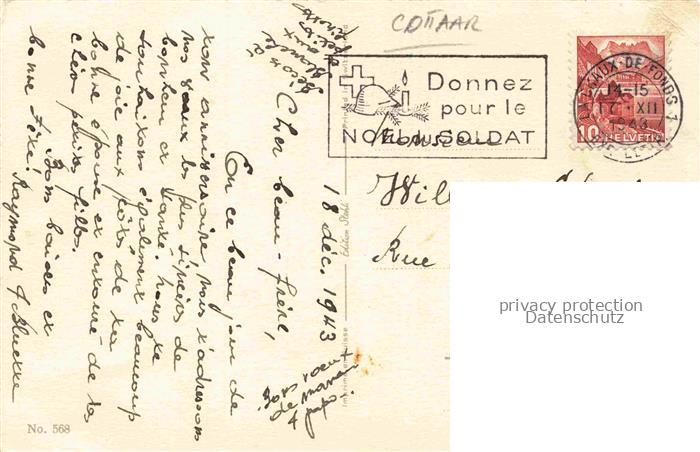 CDπAAR
Donnez
pour le
NOËL DU SOLDAT
LA CHAUX-DE-FONDS 1
14-15
17. XII
1943
10 HELVETIA
Monsieur
Will
Rue
privacy protection
Datenschutz
18 déc. 1943
Cher beau-frère,
En ce beau jour de
ton anniversaire, nous t'adressons
nos vœux les plus sincères de
bonheur et santé. Nous te
souhaitons également beaucoup
de joie aux côtés de ta
bonne épouse et entouré de tes
chères petites filles.
Bons baisers et
bonne Fête!
Raymond &
Bons vœux
de maman
& papa.
Edition Stehli
Imprimé en Suisse
No. 568